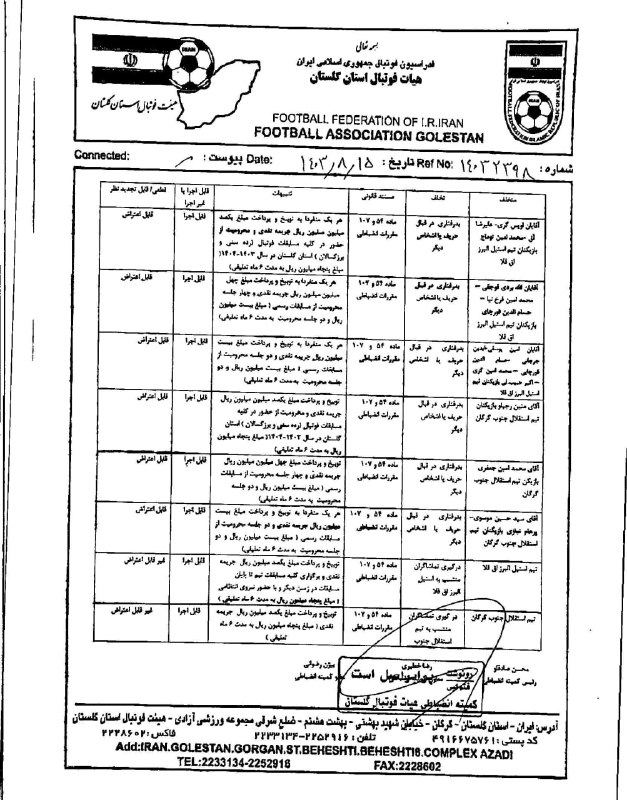 بسمه تعالی
فدراسیون فوتبال جمهوری اسلامی ایران
هیات فوتبال استان گلستان
IRAN
هیئت فوتبال استان گلستان
FOOTBALL FEDERATION OF I.R.IRAN
FOOTBALL ASSOCIATION GOLESTAN
FOOTBALL FEDERATION ISLAMIC REPUBLIC OF IRAN
شماره: ۱۴۰۳۲۳۹۸ Ref No: تاریخ: ۱۴۰۳/۸/۱۵ Date: پیوست: Connected:
متخلف
تخلف
مستند قانونی
تنبیهات
قابل اجرا یا غیر اجرا
قطعی/ قابل تجدید نظر
آقایان اویس گری- علیرضا
محمد امین توماج
بازیکنان تیم استیل البرز
اق قلا
بدرفتاری در قبال
حریف یا اشخاص
دیگر
ماده ۵۴ و ۱۰۷
مقررات انضباطی
هر یک منفردا به توبیخ و پرداخت مبلغ یکصد
میلیون میلیون ریال جریمه نقدی و محرومیت از
حضور در کلیه مسابقات فوتبال (رده سنی و
بزرگسالان) استان گلستان در سال ۱۴۰۳-۱۴۰۴(
مبلغ پنجاه میلیون ریال به مدت ۶ ماه تعلیقی)
قابل اجرا
قابل اعتراض
آقایان الله بردی قوجقی-
محمد امین فرخ نیا -
حسام الدین قورچای
بازیکنان تیم استیل البرز
اق قلا
بدرفتاری در قبال
حریف یا اشخاص
دیگر
ماده ۵۴ و ۱۰۷
مقررات انضباطی
هر یک منفردا به توبیخ و پرداخت مبلغ چهل
میلیون میلیون ریال جریمه نقدی و چهار جلسه
محرومیت از مسابقات رسمی ( مبلغ بیست میلیون
ریال و دو جلسه محرومیت به مدت ۶ ماه تعلیقی)
قابل اجرا
قابل اعتراض
جرجانی - حسام الدین
قورچایی - محمد امین گری
بازیکنان تیم
استیل البرز اق قلا
بدرفتاری در قبال
حریف یا اشخاص
دیگر
ماده ۵۴ و ۱۰۷
مقررات انضباطی
هر یک منفردا به توبیخ و پرداخت مبلغ بیست
میلیون ریال جریمه نقدی و دو جلسه محرومیت از
مسابقات رسمی ( مبلغ بیست میلیون ریال و دو
جلسه محرومیت به مدت ۶ ماه تعلیقی)
قابل اجرا
قابل اعتراض
آقای متین رجبلو بازیکنان
تیم استقلال جنوب گرگان
بدرفتاری در قبال
حریف یا اشخاص
دیگر
ماده ۵۴ و ۱۰۷
مقررات انضباطی
توبیخ و پرداخت مبلغ یکصد میلیون میلیون ریال
جریمه نقدی و محرومیت از حضور در کلیه
مسابقات فوتبال (رده سنی و بزرگسالان ) استان
گلستان در سال ۱۴۰۳-۱۴۰۴( مبلغ پنجاه میلیون
ریال به مدت ۶ ماه تعلیقی)
قابل اجرا
قابل اعتراض
آقای محمد امین جعفری
بازیکن تیم استقلال جنوب
گرگان
بدرفتاری در قبال
حریف یا اشخاص
دیگر
ماده ۵۴ و ۱۰۷
مقررات انضباطی
توبیخ و پرداخت مبلغ چهل میلیون میلیون ریال
جریمه نقدی و چهار جلسه محرومیت از مسابقات
رسمی ( مبلغ بیست میلیون ریال و دو جلسه
محرومیت به مدت ۶ ماه تعلیقی)
قابل اجرا
قابل اعتراض
آقای سید حسین موسوی-
پرهام نیازی بازیکنان تیم
استقلال جنوب گرگان
بدرفتاری در قبال
حریف یا اشخاص
دیگر
ماده ۵۴ و ۱۰۷
مقررات انضباطی
هر یک منفردا به توبیخ و پرداخت مبلغ بیست
میلیون ریال جریمه نقدی و دو جلسه محرومیت از
مسابقات رسمی ( مبلغ بیست میلیون ریال و دو
جلسه محرومیت به مدت ۶ ماه تعلیقی)
قابل اجرا
قابل اعتراض
تیم استیل البرز اق قلا
درگیری تماشاگران
منتسب به استیل
البرز اق قلا
ماده ۵۴ و ۱۰۷
مقررات انضباطی
توبیخ و پرداخت مبلغ یکصد میلیون ریال جریمه
نقدی و برگزاری کلیه مسابقات تیم تا پایان
مسابقات در زمین دیگر و با حضور نیروی انتظامی
( مبلغ پنجاه میلیون ریال به مدت ۶ ماه تعلیقی )
قابل اجرا
غیر قابل اعتراض
تیم استقلال جنوب گرگان
درگیری تماشاگران
منتسب به تیم
استقلال جنوب
ماده ۵۴ و ۱۰۷
مقررات انضباطی
توبیخ و پرداخت مبلغ یکصد میلیون ریال جریمه
نقدی ( مبلغ پنجاه میلیون ریال به مدت ۶ ماه
تعلیقی )
قابل اجرا
غیر قابل اعتراض
محسن صادقلو
رئیس کمیته انضباطی
رضا خطیری
بیژن رضوانی
عضو کمیته انضباطی
رونوشت برابر اصل است
کمیته انضباطی هیات فوتبال گلستان
آدرس: ایران - استان گلستان - گرگان - خیابان شهید بهشتی - بهشت هشتم - ضلع شرقی مجموعه ورزشی آزادی - هیئت فوتبال استان گلستان
کدپستی: ۴۹۱۶۶۷۵۷۶۱ تلفن: ۲۲۵۲۹۱۶-۲۲۳۳۱۳۴ فاکس: ۲۲۲۸۶۰۲
Add:IRAN.GOLESTAN.GORGAN.ST.BEHESHTI.BEHESHTI8.COMPLEX AZADI
TEL:2233134-2252916 FAX:2228602